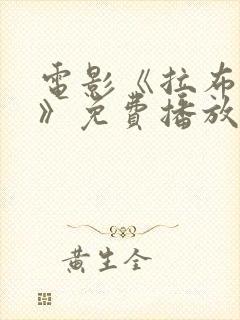 電影《拉布
》免費播放
黃生全